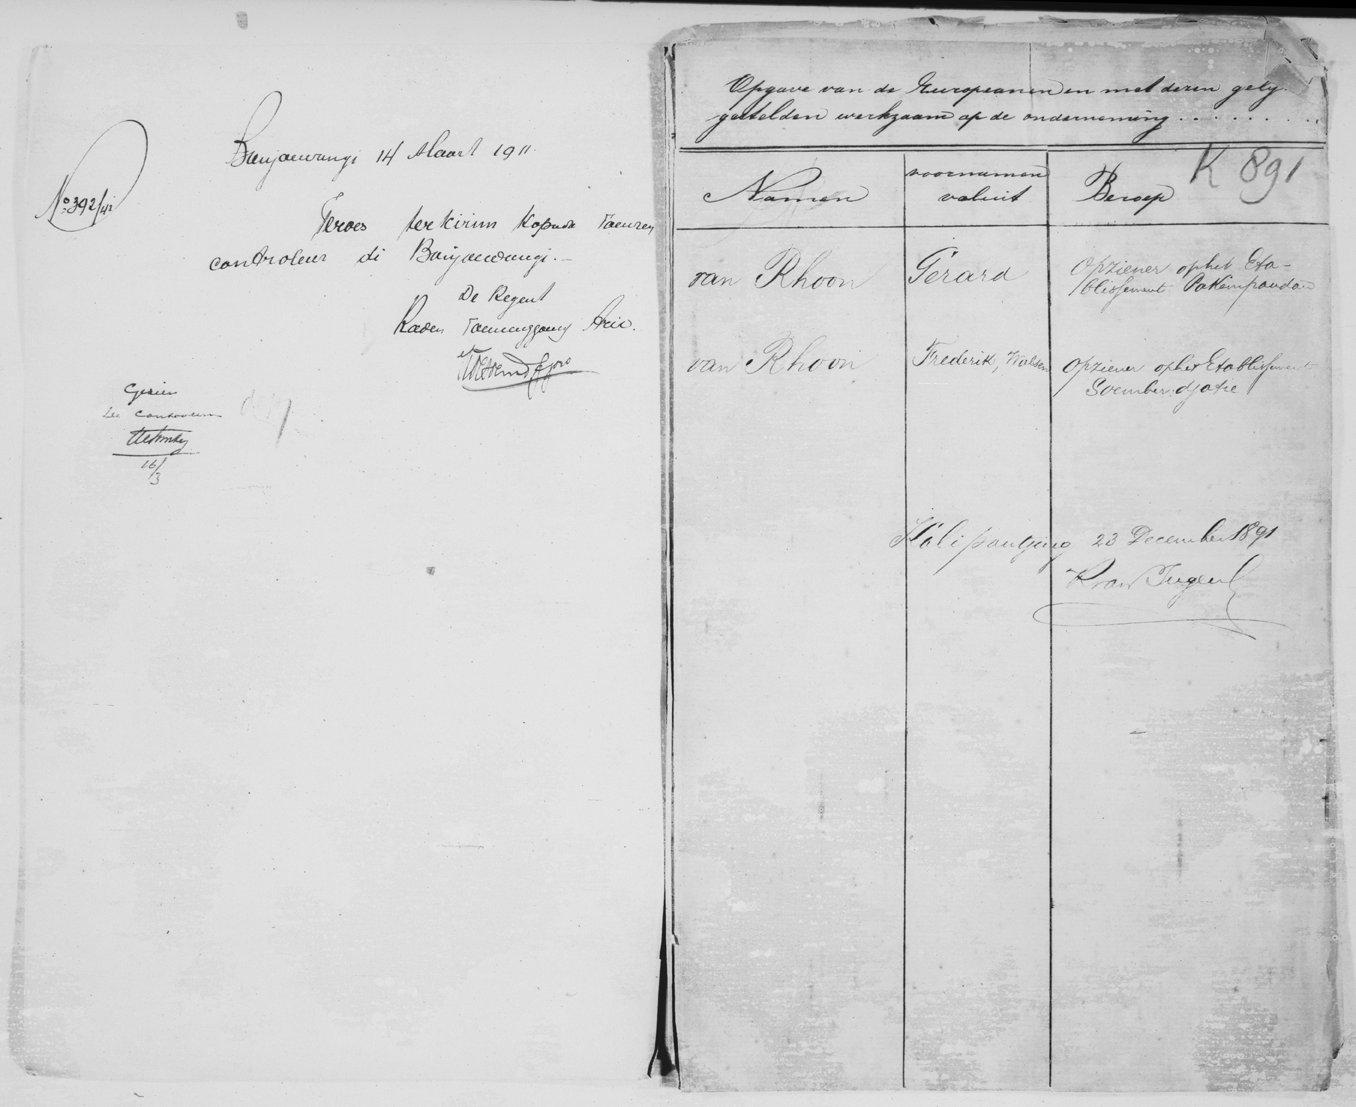 Banjoewangi 14 Maart 1911.
No. 392/42
Teroes terkirim kapada Toewan
controleur di Banjoewangi.-
De Regent
Raden Toemenggoeng Ario.
Gezien
De Controleur
16/3
Opgave van de Europeanen en met deren gelij-
gestelden werkzaam op de onderneming . . . . . . . . .
K 891
Namen
voornamen
voluit
Beroep
van Rhoon
Gerard
Opziener op het Eta-
blissement Pakempandan
van Rhoon
Frederik,
Opziener op het Etablissement
Soember djatie
Kalipantjing 23 December 1891